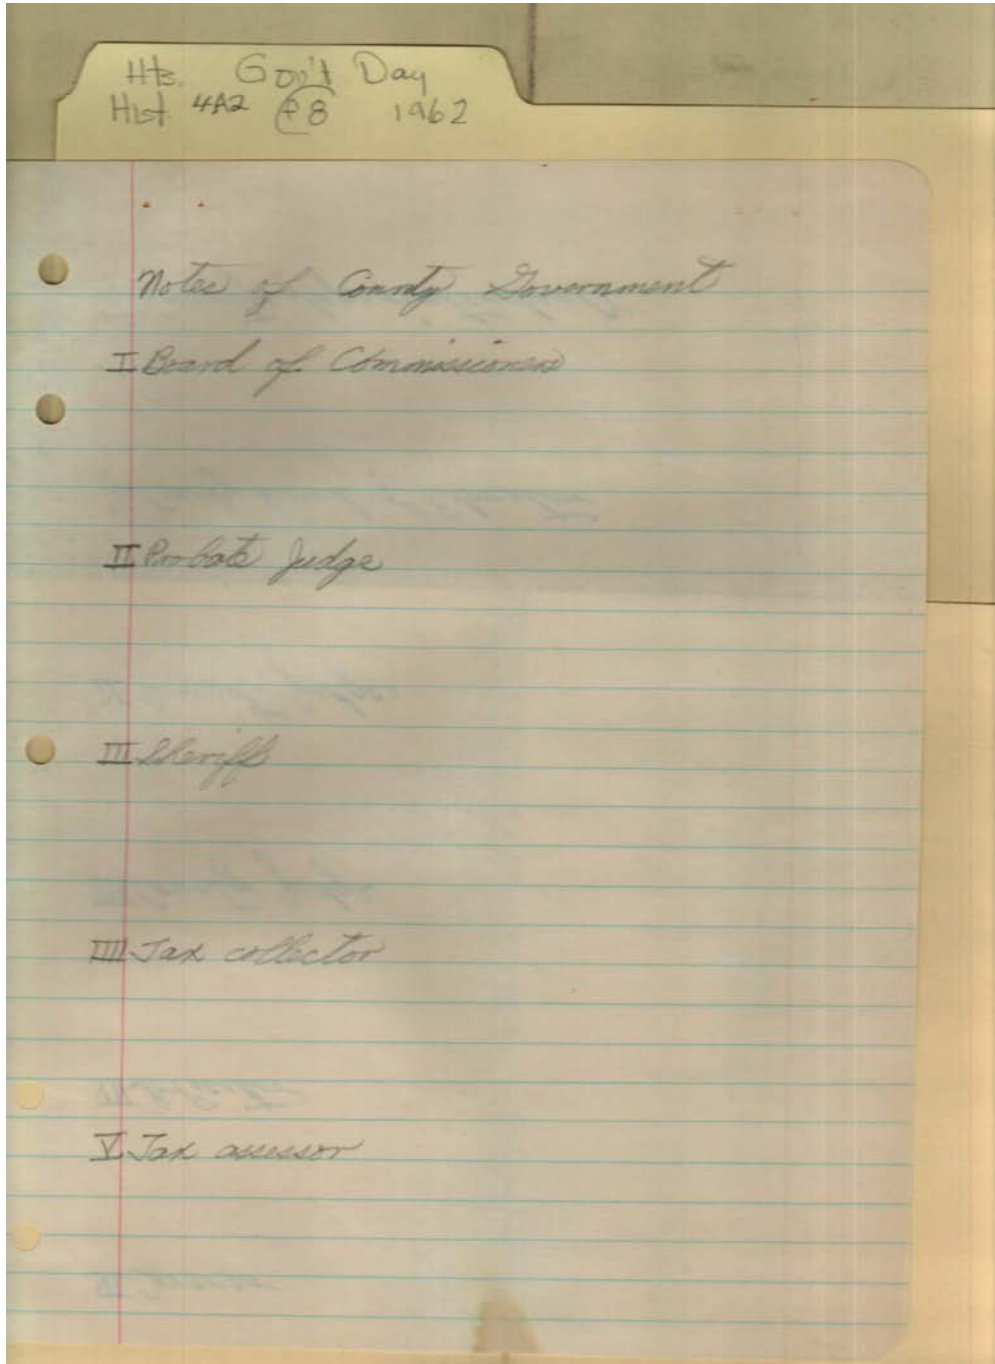 Hts. Gov't Day
Hist 4A2 f8 1962
Notes of County Government
I Board of Commissioners
II Probate Judge
III Sheriff
IIII Tax collector
V Tax assessor